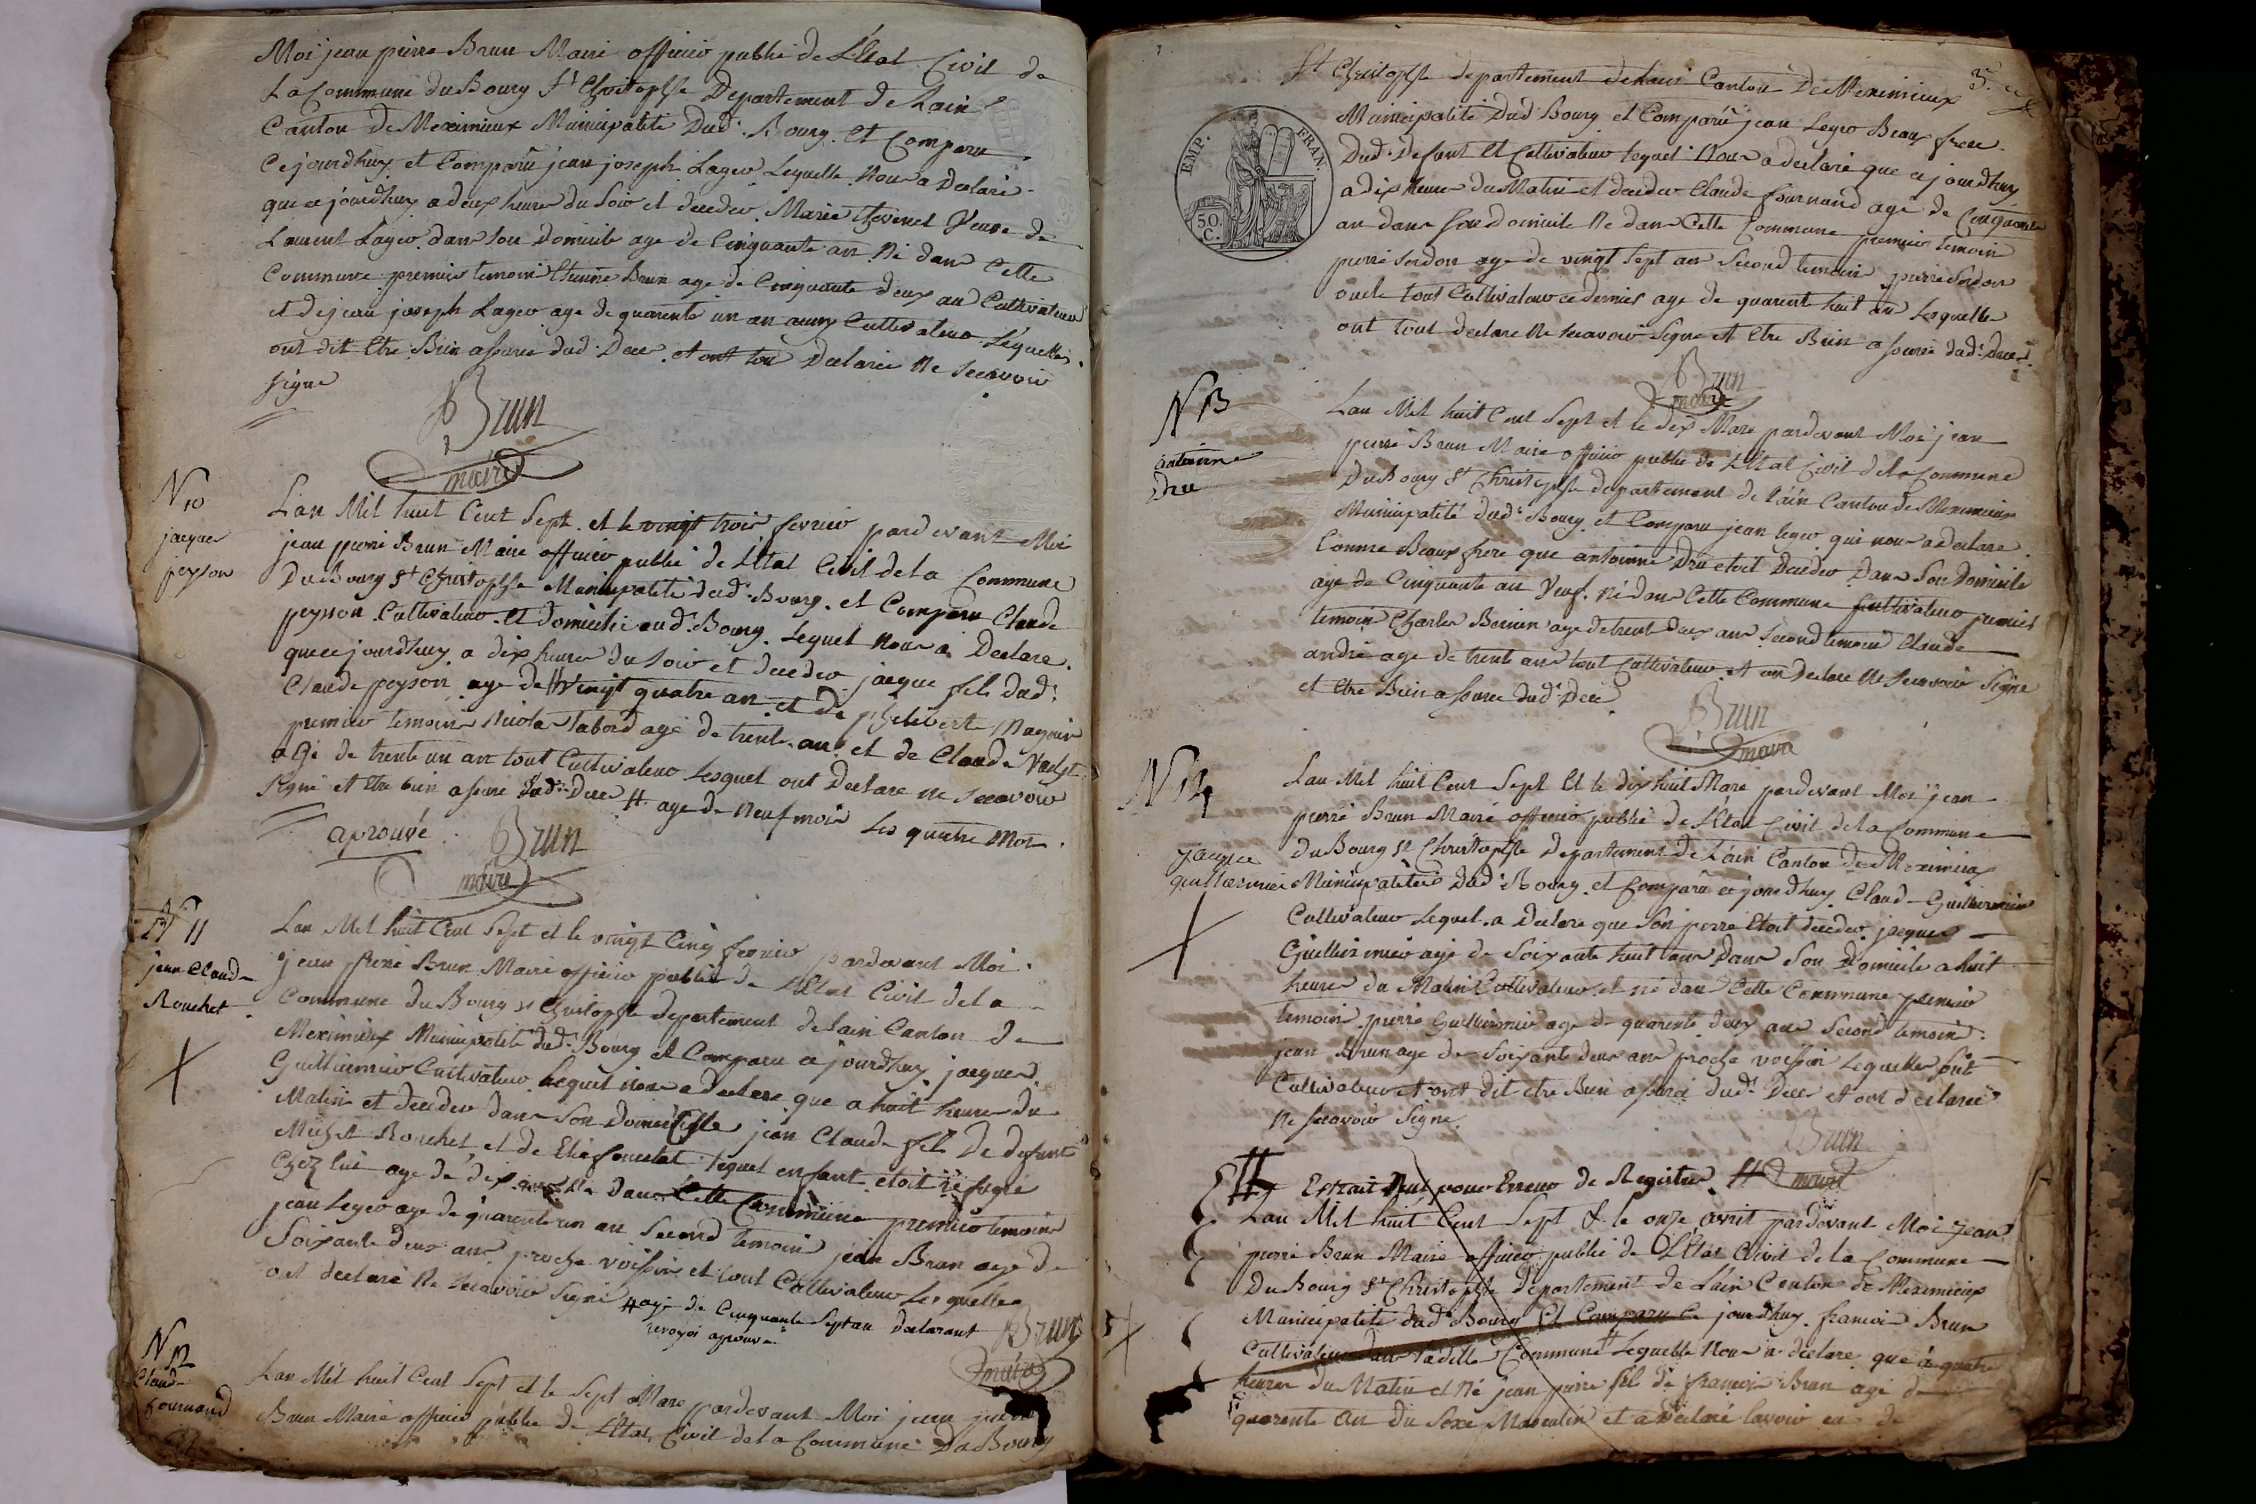 Moi jean pierre Brun Maire officier public de L'Etat Civil de
La Commune du Bourg St Christophe Departement de Lain
Canton de Meximieux Municipalité Dud. Bourg. Et Comparu
Cejourdhuy et Comparu jean joseph Lager Lequelle Nous a Declaré
que ce jourdhuy a deux heure du Soir et decedee Marie thevenet Veuve de
Laurent Lager dans Son Domicile age de Cinquante an Né dans Cette
Commune premier temoin Etienne Brun age de Cinquante deux an Cultivateur
et de jean joseph Lager age de quarente un an aussy Cultivateur Lequelles
ont dit Etre Bien assurée dud. Dece et ont tou Declarée Ne Scavoir
signe
Brun
maire
N 10
jacque
peyson
L'an Mil huit Cent Sept et le vingt trois fevrier pard evant Moi
jean pierre Brun Maire officier public de L'Etat Civil de La Commune
Du Bourg St Christophe Municipalité dud. Bourg. et Comparu Claude
peysson Cultivateur Et domicilié aud. Bourg. Lequel Nous a Declare
que ce jourdhuy a dix heure du Soir et decedee jacque fils dud.
Claude peyson age de # vingt quatre an et de philibert Magnin
premier temoin Nicola tabord age de trente an et de Claude
agé de trente un an tout Cultivateur Lesquel ont Declare ne Scavoir
signe et Etre bien assuré Dud. Dece # age de Neuf moi Les quatre Mot
aprouvé
Brun
maire
N 11
jean Claude
Rouchet
Lan Mil huit Cent Sept et le vingt Cinq fevrier pardevant Moi
jean pierre Brun Maire officier public de L'Etat Civil de La
Commune du Bourg St Christophe departement de Lain Canton de
Meximieux Municipalité Dud. Bourg et Comparu ce jourdhuy jacque
Guillermier Cultivateur Lequel nous a declare que a huit heure du
Matin et decedee dans Son Domicile jean Claude fils De defunt
Michel Rouchet et de lequel enfant etoit refugié
Chez lui age de dix Dans Cette Commune premier temoin
jean Leger age de quarente un an Second temoin jean Brun age de
Soixante deux an proche voisin et tout Cultivateur Lesquelles
ont declaré Ne Scavoir Signé # age de Cinquante Sept an declarant
renvoi aprouvé
Brun
maire
N 12
Claude
fournand
Lan Mil huit Cent Sept et le Sept Mars pardevant Moi jean pierre
Brun Maire officier public de L'Etat Civil de la Commune Du Bourg
3e
St Christophe departement de Lain Canton De Meximieux
TEMP. FRAN.
50 C.
Municipalité Dud. Bourg et Comparu jean Leger Beau frere
Dud. Defunt Et Cultivateur lequel Nous a declaré que ce jourdhuy
a dix heure du Matin et decedee Claude fournand age de Cinquante
an dans Son domicile Né dans Cette Commune premier temoin
pierre Sordon age de vingt Sept an Second temoin pierre Sordon
oncle tout Cultivateur ce dernier age de quarente huit an Lesquelles
ont tout declare Ne Scavoir Signe et Etre Bien assurée dud. Dece
Brun
maire
N 13
antoinne
Dru
Lan Mil huit Cent Sept et le dix Mars pardevant Moi jean
pierre Brun Maire officier public de L'Etat Civil de la Commune
Du Bourg St Christophe departement de L'ain Canton de Meximieux
Municipalité dud. Bourg et Comparu jean leger qui nous a declare
Comme Beau frere que antoinne Dru etoit Decedee Dans Son Domicile
age de Cinquante an Veuf. Né dans Cette Commune Cultivateur premier
temoin Charles Bernin age de trente deux an Second temoin Claude
andré age de trente an tout Cultivateur et on declare Ne Scavoir Signe
et Etre Bien assurée dud. Dece
Brun
maire
N 14
Jacque
guillermier
Lan Mil huit Cent Sept Et le dix huit Mars pardevant Moi jean
pierre Brun Maire officier public de L'Etat Civil de la Commune
du Bourg St Christophe Departement de L'ain Canton de Meximieux
Municipalité Dud. Bourg. et Comparu ce jourdhuy Claude Guillermier
Cultivateur Lequel a Declare que Son perre Etoit decedee jacque
Guillermier agé de Soixante huit ans Dans Son Domicile a huit
heure du Matin Cultivateur et né dans Cette Commune premier
temoin pierre Guillermier age de quarente deux an Second temoin
jean Brun age de Soixante deux an proche voisin Lequelles Sont
Cultivateur et ont dit etre Bien assuré dud. Dece et ont declarée
Ne Scavoir Signe.
Brun
maire
# Extrait Nul pour Erreur de Registre #
Lan Mil huit Cent Sept & le onze avril pardevant Moi jean
pierre Brun Maire officier public de L'Etat Civil de la Commune
Du Bourg St Christophe departement de L'ain Canton de Meximieux
Municipalité dud. Bourg Et Comparu Ce jourdhuy francoi Brun
Cultivateur dans ladille Commune Lequelle Nous a declare que a quatre
heure du Matin et Né jean pierre fils de francoi Brun agé de
quarente an du Sexe Masculin et a declaré lavoir eu de